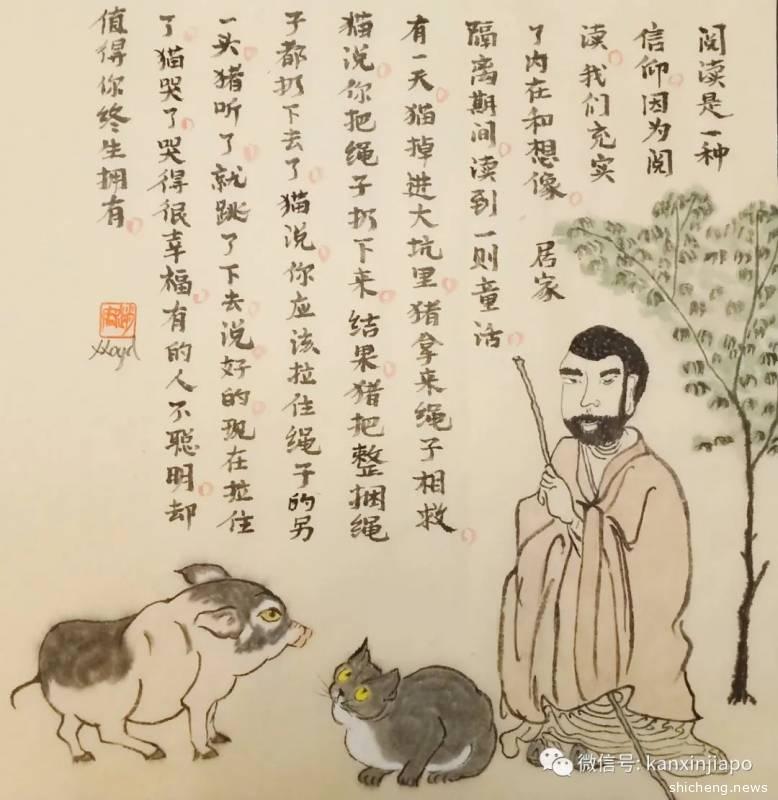 阅读是一种
信仰。因为阅
读。我们充实
了内在和想像。 居家
隔离期间。读到一则童话。
有一天。猫掉进大坑里。猪拿来绳子相救。
猫说。你把绳子扔下来。结果猪把整捆绳
子都扔下去了。猫说。你应该拉住绳子的另
一头。猪听了。就跳了下去说。好的。现在拉住
了。猫哭了。哭得很幸福。有的人不聪明。却
值得你终生拥有。
微信号: kanxinjiapo
shicheng.news